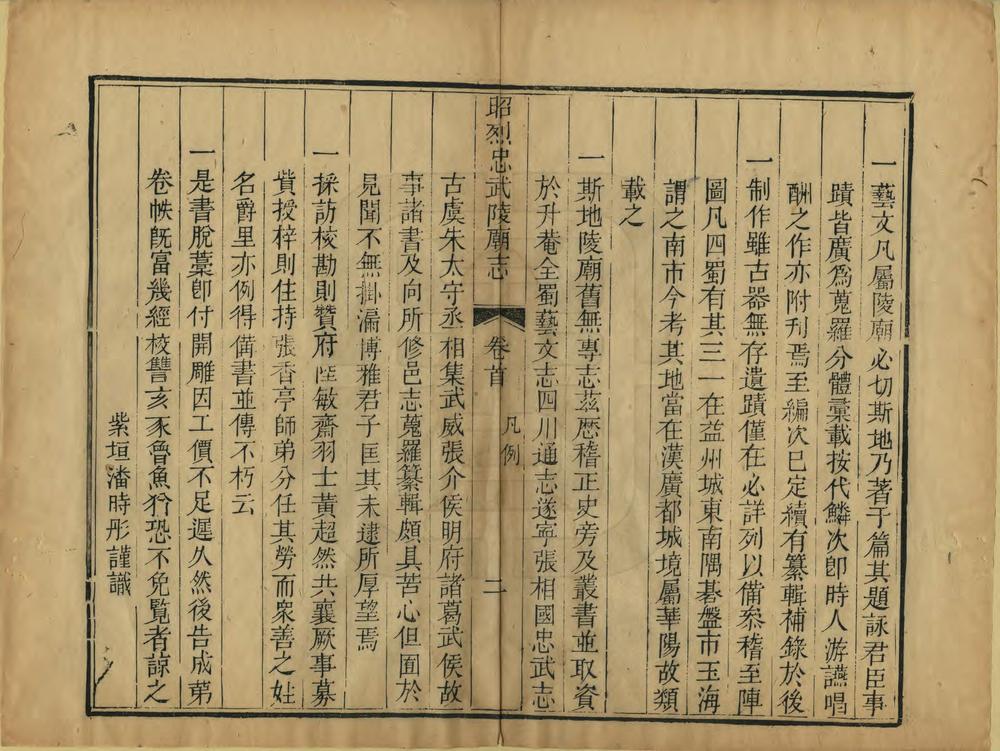 一藝文凡屬陵廟必切斯地乃著于篇其題詠君臣事
蹟皆廣爲蒐羅分體彙載按代鱗次卽時人游讌唱
酬之作亦附刋焉至編次已定續有纂輯補錄於後
一制作雖古器無存遺蹟僅在必詳列以備叅稽至陣
圖凡四蜀有其三一在益州城東南隅碁盤市玉海
謂之南市今考其地當在漢廣都城境屬華陽故類
載之
一斯地陵廟舊無專志茲歷稽正史旁及叢書並取資
於升菴全蜀藝文志四川通志遂寧張相國忠武志
昭烈忠武陵廟志 卷首 凡例 二
古虞朱太守丞相集武威張介侯明府諸葛武侯故
事諸書及向所修邑志蒐羅纂輯頗具苦心但囿於
見聞不無掛漏博雅君子匡其未逮所厚望焉
一採訪校勘則贊府陸敏齋羽士黃超然共襄厥事募
貲授梓則住持張香亭師弟分任其勞而衆善之姓
名爵里亦例得備書並傳不朽云
一是書脫藁卽付開雕因工價不足遲久然後告成第
卷帙旣富幾經校讐亥豕魯魚猶恐不免覧者諒之
紫垣潘時彤謹識